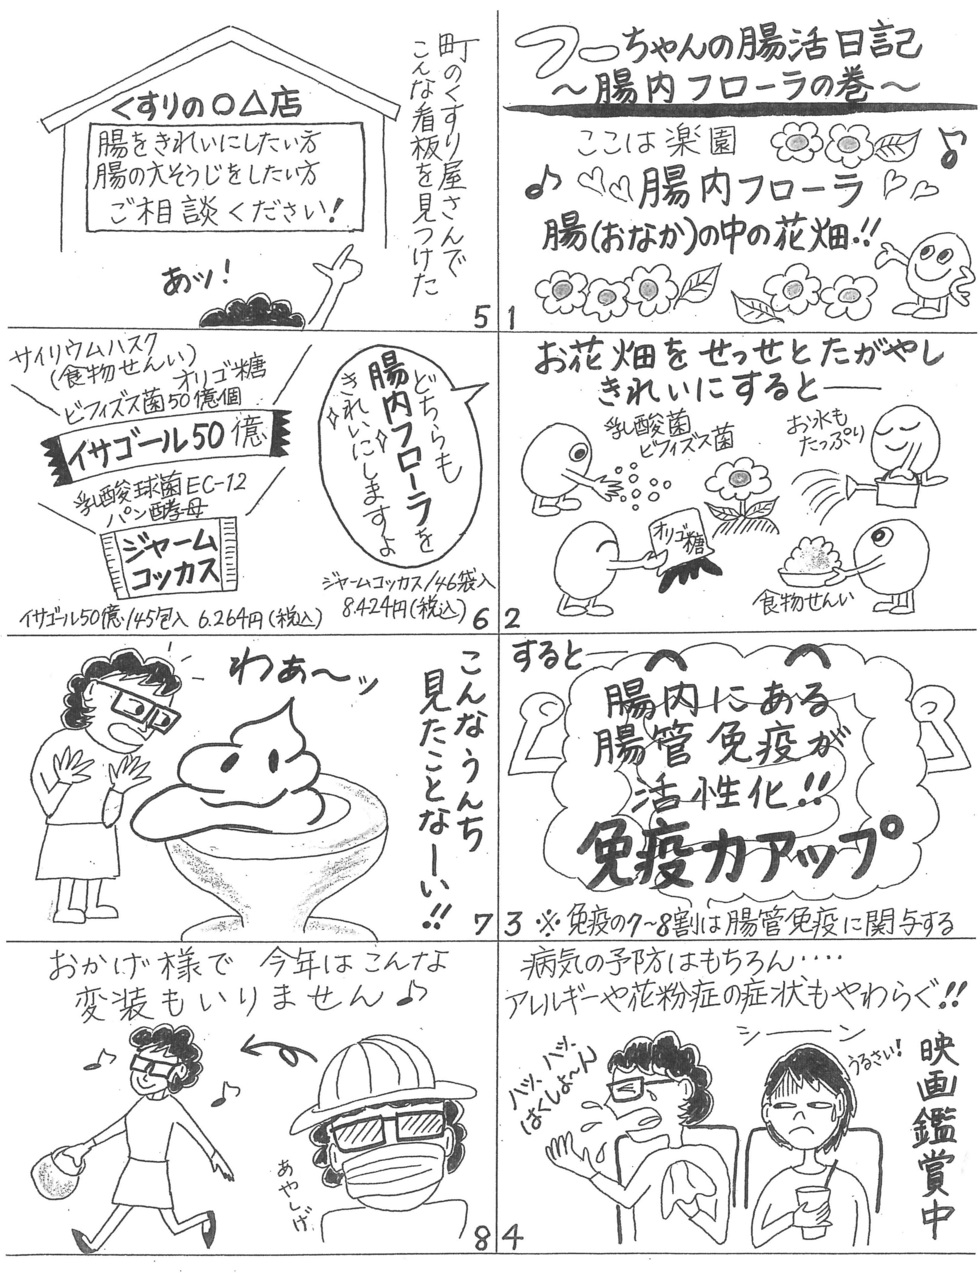 フーちゃんの腸活日記
～腸内フローラの巻～
ここは楽園
腸内フローラ
腸(おなか)の中の花畑!!
1
お花畑をせっせとたがやし
きれいにすると――
乳酸菌
ビフィズス菌
お水も
たっぷり
オリゴ糖
食物せんい
2
すると―
腸内にある
腸管免疫が
活性化!!
免疫力アップ
3
※免疫の7～8割は腸管免疫に関与する
病気の予防はもちろん‥‥
アレルギーや花粉症の症状もやわらぐ!!
シ――ン
ハッ、ハッ、
はくしょ～ん
うるさい!
映画鑑賞中
4
町のくすり屋さんで
こんな看板を見つけた
くすりの○△店
腸をきれいにしたい方
腸の大そうじをしたい方
ご相談ください!
あッ!
5
サイリウムハスク
(食物せんい)
オリゴ糖
ビフィズス菌50億個
イサゴール50億
乳酸球菌EC-12
パン酵母
ジャーム
コッカス
どちらも
腸内フローラを
きれいにしますよ
ジャームコッカス/46袋入
8.424円(税込)
イサゴール50億/45包入 6.264円(税込)
6
わぁ～ッ
こんなうんち
見たことなーい!!
7
おかげ様で 今年はこんな
変装もいりません♪
あやしげ
8